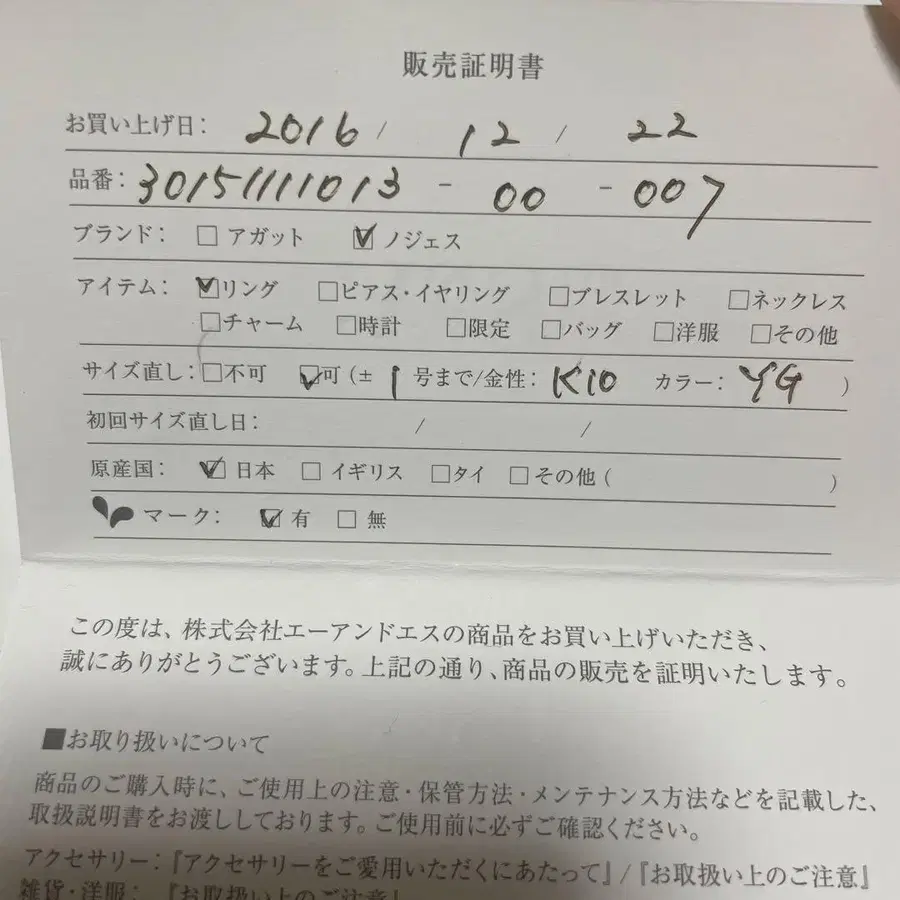 販売証明書
お買い上げ日: 2016 / 12 / 22
品番: 30151111013 - 00 - 007
ブランド: □ アガット ☑ ノジェス
アイテム: ☑リング □ピアス・イヤリング □ブレスレット □ネックレス
□チャーム □時計 □限定 □バッグ □洋服 □その他
サイズ直し: □不可 ☑可 (± 1 号まで/金性: K10 カラー: YG )
初回サイズ直し日: / /
原産国: ☑ 日本 □ イギリス □タイ □その他 ( )
マーク: ☑ 有 □ 無
この度は、株式会社エーアンドエスの商品をお買い上げいただき、
誠にありがとうございます。上記の通り、商品の販売を証明いたします。
■お取り扱いについて
商品のご購入時に、ご使用上の注意・保管方法・メンテナンス方法などを記載した、
取扱説明書をお渡ししております。ご使用前に必ずご確認ください。
アクセサリー:『アクセサリーをご愛用いただくにあたって』/『お取扱い上のご注意』
雑貨・洋服: 『お取扱い上のご注意』